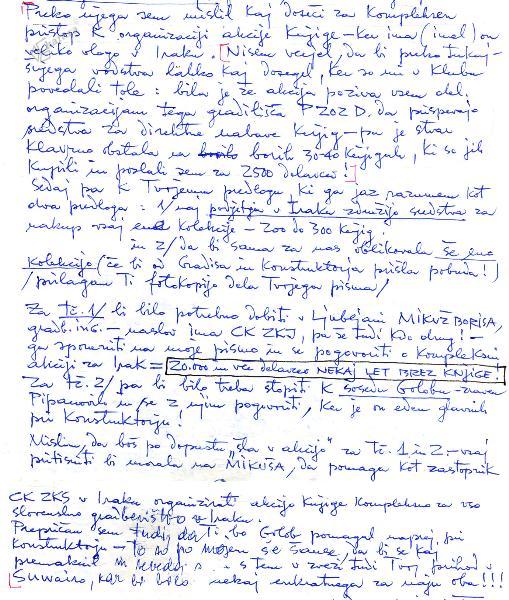 Preko njega sem mislil kaj doseči za kompleksen
pristop k organizaciji akcije knjige – ker ima (imel) on
veliko vlogo v Iraku. [Nisem verjel, da bi preko tukaj-
šnjega vodstva lahko kaj dosegel, ker so mi v klubu
povedali tole: bila je že akcija poziva vsem del.
organizacijam tega gradilišča P202 D. da prispevajo
sredstva za direktne nabave knjig – pa je stvar
klavrno obstala na borih 30-40 knjigah, ki so jih
kupili in poslali sem za 2500 delavcev!]
Sedaj pa k Tvojemu predlogu, ki ga jaz razumem kot
dva predloga: 1/ naj podjetja v Iraku združijo sredstva za
nakup vsaj ene kolekcije – 200 do 300 knjig,
in 2/ da bi sama za nas oblikovala še eno
kolekcijo (če bi od Gradisa in Konstruktorja prišla pobuda!)
/prilagam Ti fotokopijo dela Tvojega pisma/
Za tč. 1/ bi bilo potrebno dobiti v Ljubljani MIKUŽ BORISA,
gradb. inž. – naslov ima CK ZKS, pa še tudi kdo drug! –
ga spomniti na moje pismo in se pogovoriti o kompleksni
akciji za Irak = 20.000 in več delavcev NEKAJ LET BREZ KNJIGE!
Za tč. 2/ pa bi bilo treba stopiti k sosedu Golobu – zraven
Pipanovih in se z njim pogovoriti, ker je on eden glavnih
pri Konstruktorju!
Mislim, da boš po dopustu „šla v akcijo" za tč. 1 in 2 – vsaj
pritisniti bi morala na "MIKUŠA, da pomaga kot zastopnik
CK ZKS v Iraku organizirat akcijo knjige kompleksno za vso
slovensko gradbeništvo v Iraku.
Prepričan sem tudi, da Ti bo Golob pomagal naprej, pri
Konstruktorju – to so po mojem še šanse, da bi se kaj
premaknil in seveda s tem v zvezi tudi Tvoj prihod v
[Suwairo, kar bi bilo nekaj enkratnega za naju oba!!!